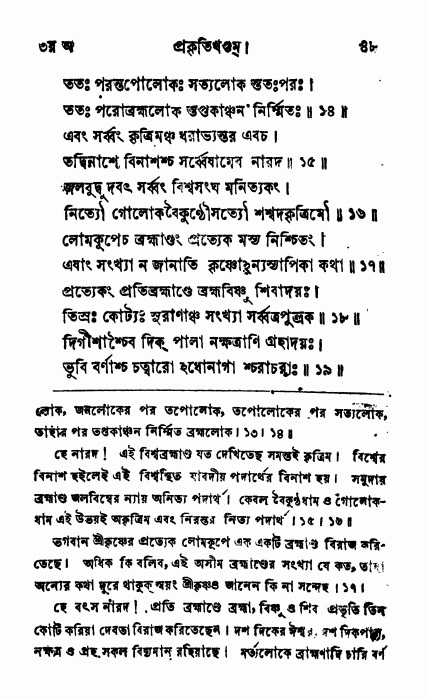 ৩য় অ প্রকৃতিখণ্ডম্। ৪৮
ততঃ পরস্তপোলোকঃ সত্যলোক স্ততঃপরঃ।
ততঃ পরোব্রহ্মলোক স্তপ্তকাঞ্চন নির্ম্মিতঃ॥ ১৪॥
এবং সর্ব্বং কৃত্রিমঞ্চ ধরাভ্যন্তর এবচ।
তদ্বিনাশে বিনাশশ্চ সর্ব্বেষামেব নারদ॥ ১৫॥
জলবুদ্বুদবৎ সর্ব্বং বিশ্বসংঘ মনিত্যকং।
নিত্যৌ গোলোকবৈকুণ্ঠৌসত্যৌ শশ্বদকৃত্রিমৌ॥ ১৬॥
লোমকূপেচ ব্রহ্মাণ্ডং প্রত্যেক মস্য নিশ্চিতং।
এষাং সংখ্যা ন জানাতি কৃষ্ণোঽন্যস্যাপিকা কথা॥ ১৭॥
প্রত্যেকং প্রতিব্রহ্মাণ্ডে ব্রহ্মবিষ্ণু শিবাদয়ঃ।
তিস্রঃ কোট্যঃ সুরাণাঞ্চ সংখ্যা সর্ব্বত্রপুত্রক॥ ১৮॥
দিগীশাশ্চৈব দিক্ পালা নক্ষত্রাণি গ্রহাদয়ঃ।
ভুবি বর্ণাশ্চ চত্বারো ঽধোনাগা শ্চরাচরাঃ॥ ১৯॥
লোক, জনলোকের পর তপোলোক, তপোলোকের পর সত্যলোক,
তাহার পর তপ্তকাঞ্চন নির্ম্মিত ব্রহ্মলোক। ১৩। ১৪॥
হে নারদ! এই বিশ্বব্রহ্মাণ্ড যত দেখিতেছ সমস্তই কৃত্রিম। বিশ্বের
বিনাশ হইলেই এই বিশ্বস্থিত যাবদীয় পদার্থের বিনাশ হয়। সমুদায়
ব্রহ্মাণ্ড জলবিম্বের ন্যায় অনিত্য পদার্থ। কেবল বৈকুণ্ঠধাম ও গোলোক-
ধাম এই উভয়ই অকৃত্রিম এবং নিরন্তর নিত্য পদার্থ। ১৫। ১৬॥
ভগবান শ্রীকৃষ্ণের প্রত্যেক লোমকূপে এক একটি ব্রহ্মাণ্ড বিরাজ করি-
তেছে। অধিক কি বলিব, এই অসীম ব্রহ্মাণ্ডের সংখ্যা যে কত, তাহা
অন্যের কথা দূরে থাকুক্ স্বয়ং শ্রীকৃষ্ণও জানেন কি না সন্দেহ। ১৭।
হে বৎস নারদ! প্রতি ব্রহ্মাণ্ডে ব্রহ্মা, বিষ্ণু ও শিব প্রভৃতি তিন
কোটি করিয়া দেবতা বিরাজ করিতেছেন। দশ দিকের ঈশ্বর, দশ দিকপাল,
নক্ষত্র ও গ্রহ সকল বিদ্যমান্ রহিয়াছে। মর্ত্ত্যলোকে ব্রাহ্মণাদি চারি বর্ণ